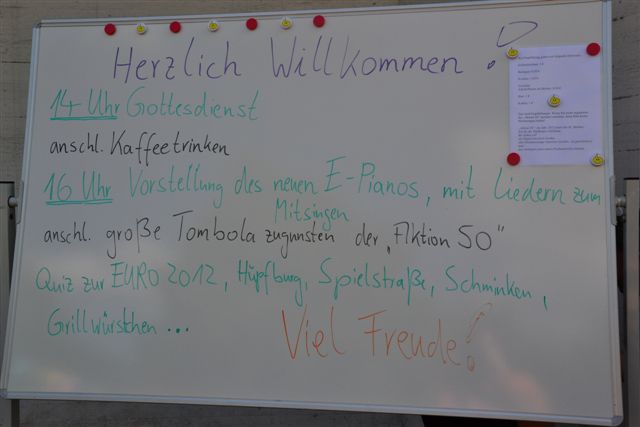 Herzlich Willkommen!
14 Uhr Gottesdienst
anschl. Kaffeetrinken
16 Uhr Vorstellung des neuen E-Pianos, mit Liedern zum
Mitsingen
anschl. große Tombola zugunsten der „Aktion 50"
Quiz zur EURO 2012, Hüpfburg, Spielstraße, Schminken,
Grillwürstchen...
Viel Freude!